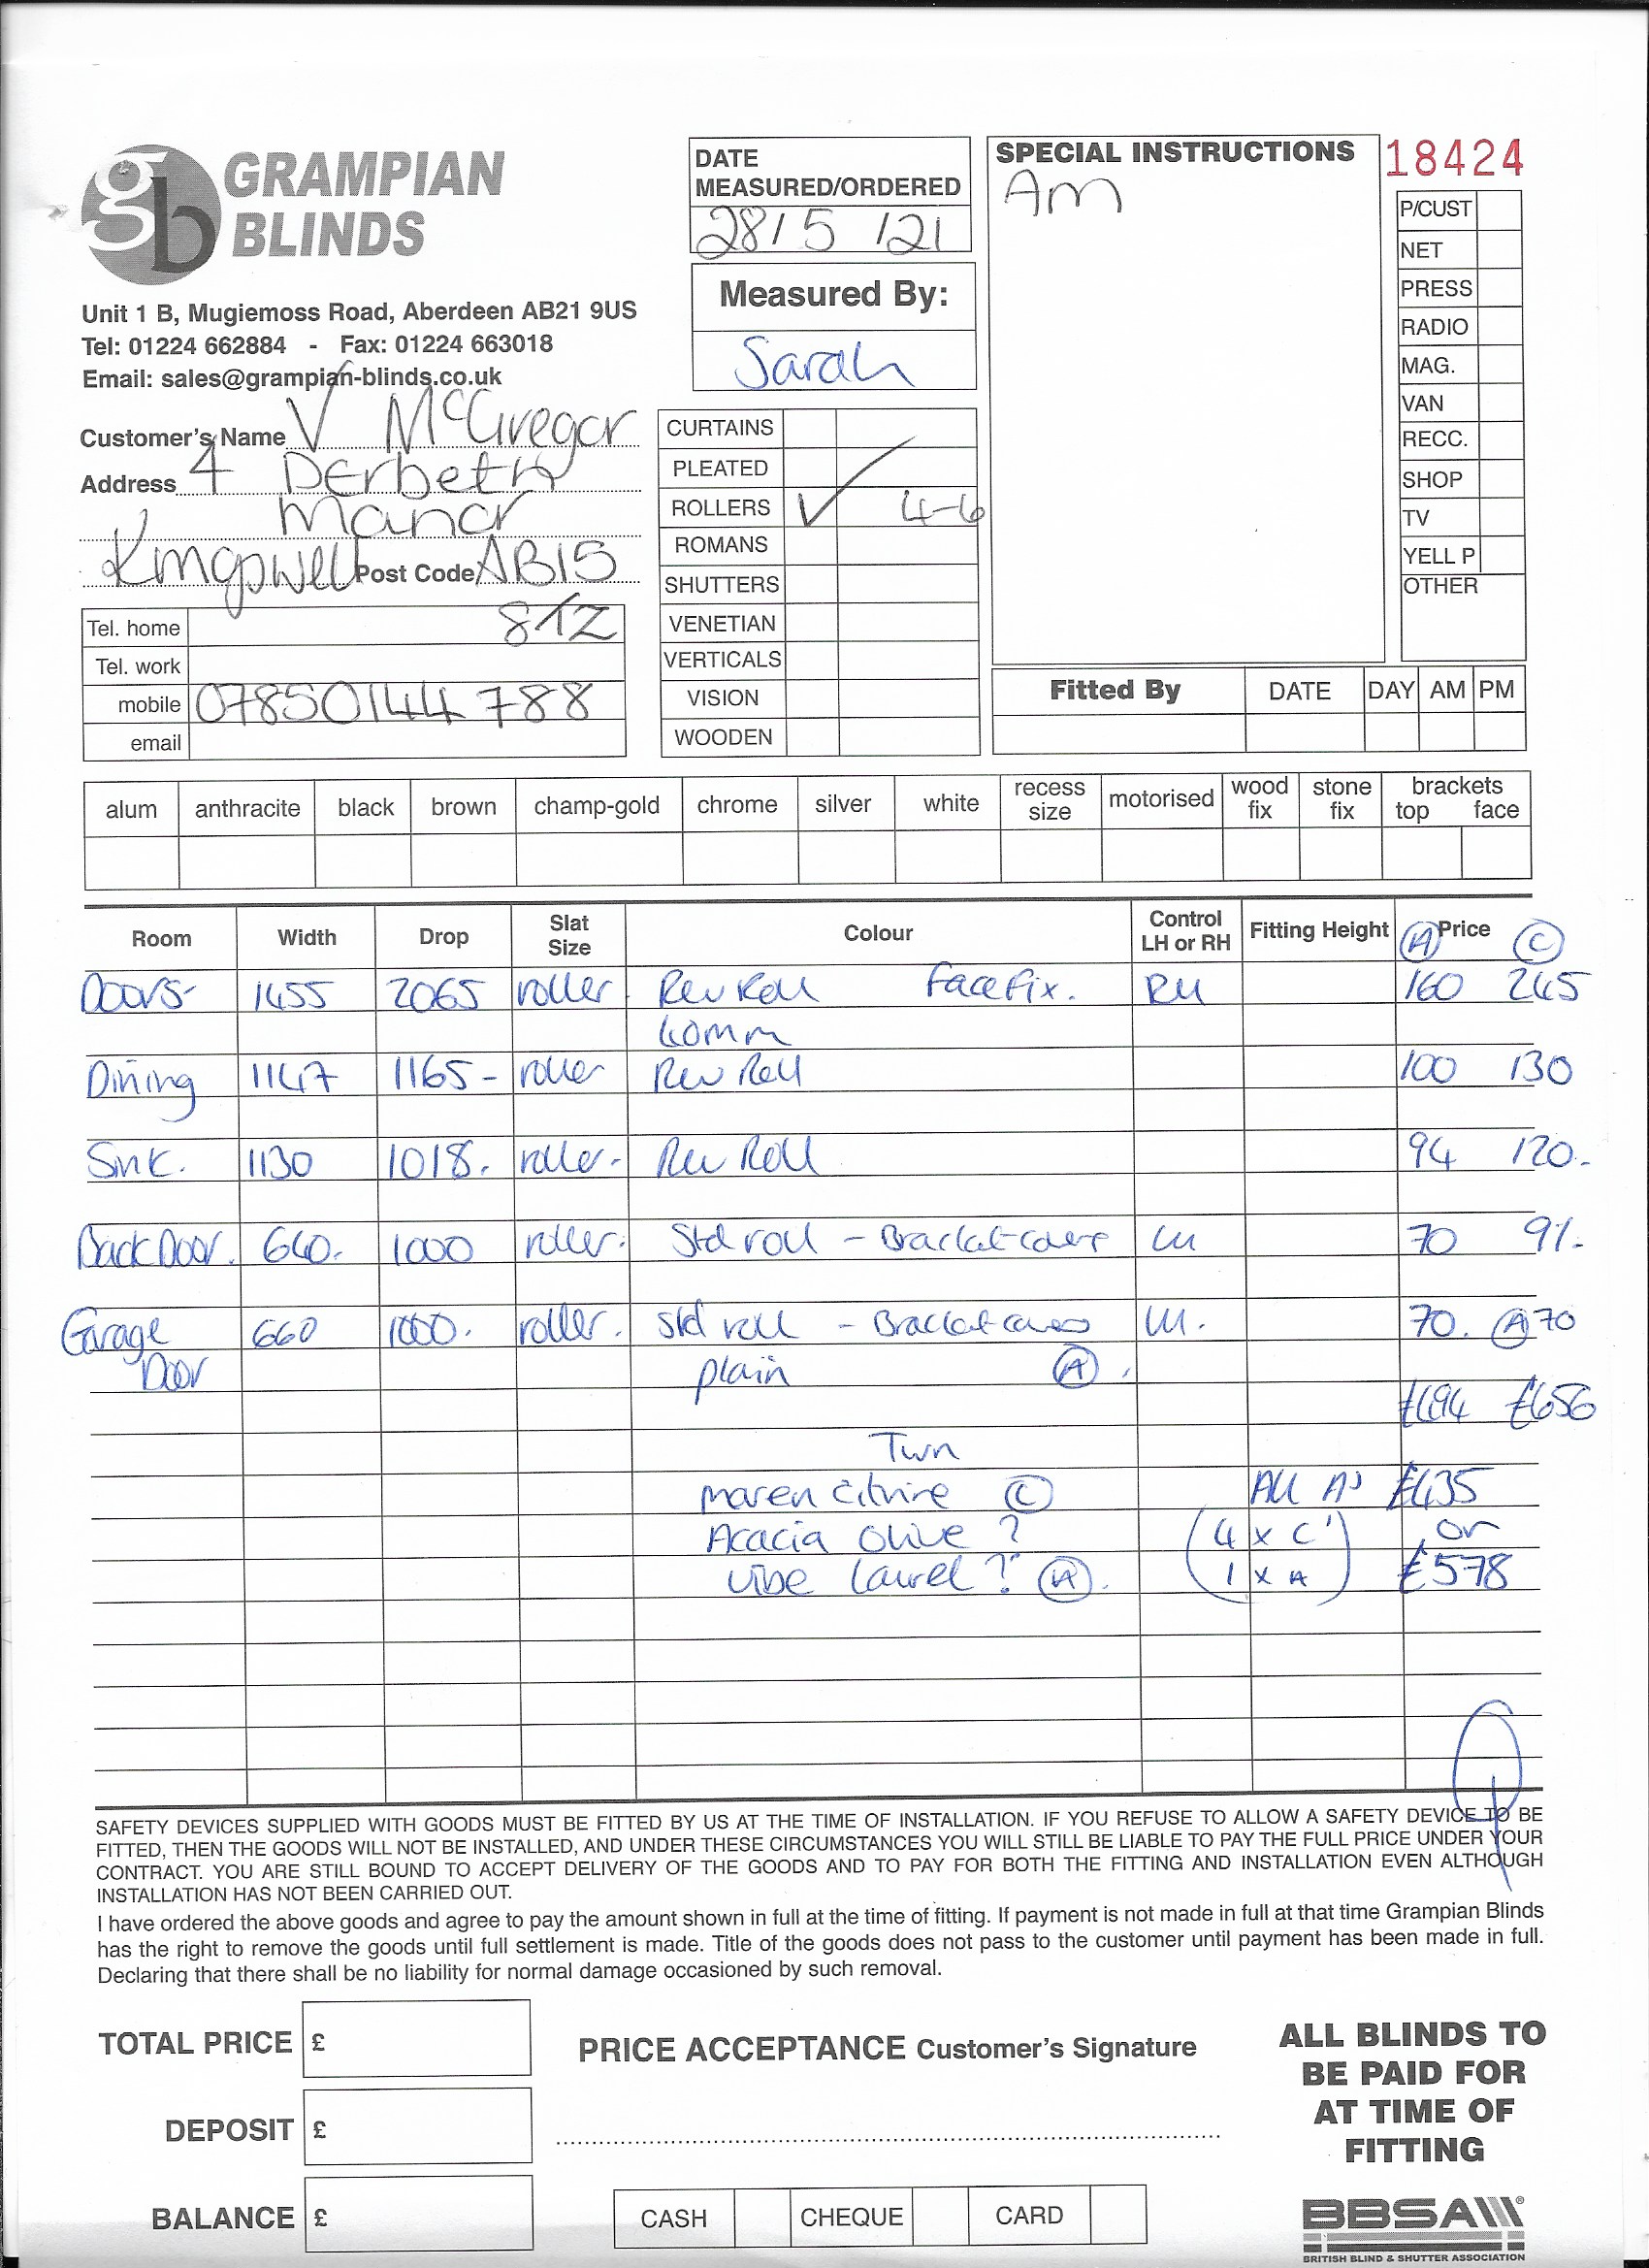 GRAMPIAN
BLINDS
Unit 1 B, Mugiemoss Road, Aberdeen AB21 9US
Tel: 01224 662884 - Fax: 01224 663018
Email: sales@grampian-blinds.co.uk
Customer's Name V McGregor
Address 4 Derbeth
Manor
Kingswell Post Code AB15
8TZ
Tel. home
Tel. work
mobile 07850144788
email
DATE
MEASURED/ORDERED
28/5/21
Measured By:
Sarah
CURTAINS
PLEATED
ROLLERS ✓ 4-6
ROMANS
SHUTTERS
VENETIAN
VERTICALS
VISION
WOODEN
SPECIAL INSTRUCTIONS
Am
18424
P/CUST
NET
PRESS
RADIO
MAG.
VAN
RECC.
SHOP
TV
YELL P
OTHER
Fitted By DATE DAY AM PM
alum anthracite black brown champ-gold chrome silver white recess size motorised wood fix stone fix brackets top face
Room Width Drop Slat Size Colour Control LH or RH Fitting Height Ⓐ Price Ⓒ
Doors 1455 2065 roller Rev Roll Face Fix. RH 160 245
40mm
Dining 1147 1165 - roller Rev Roll 100 130
Sink. 1130 1018. roller. Rev Roll 94 120.
Back Door. 640. 1000 roller. Std roll - Bracket covers LH 70 91.
Garage 660 1000. roller. Std roll - Bracket covers LH. 70. Ⓐ 70
Door plain Ⓐ.
£494 £656
Twn
maren Citrine Ⓒ All A's £435
Acacia Olive ? (4 x C's or
Vibe Laurel ? Ⓐ. 1 x A) £578
SAFETY DEVICES SUPPLIED WITH GOODS MUST BE FITTED BY US AT THE TIME OF INSTALLATION. IF YOU REFUSE TO ALLOW A SAFETY DEVICE TO BE
FITTED, THEN THE GOODS WILL NOT BE INSTALLED, AND UNDER THESE CIRCUMSTANCES YOU WILL STILL BE LIABLE TO PAY THE FULL PRICE UNDER YOUR
CONTRACT. YOU ARE STILL BOUND TO ACCEPT DELIVERY OF THE GOODS AND TO PAY FOR BOTH THE FITTING AND INSTALLATION EVEN ALTHOUGH
INSTALLATION HAS NOT BEEN CARRIED OUT.
I have ordered the above goods and agree to pay the amount shown in full at the time of fitting. If payment is not made in full at that time Grampian Blinds
has the right to remove the goods until full settlement is made. Title of the goods does not pass to the customer until payment has been made in full.
Declaring that there shall be no liability for normal damage occasioned by such removal.
TOTAL PRICE £
DEPOSIT £
BALANCE £
PRICE ACCEPTANCE Customer's Signature
CASH CHEQUE CARD
ALL BLINDS TO
BE PAID FOR
AT TIME OF
FITTING
BBSA
BRITISH BLIND & SHUTTER ASSOCIATION